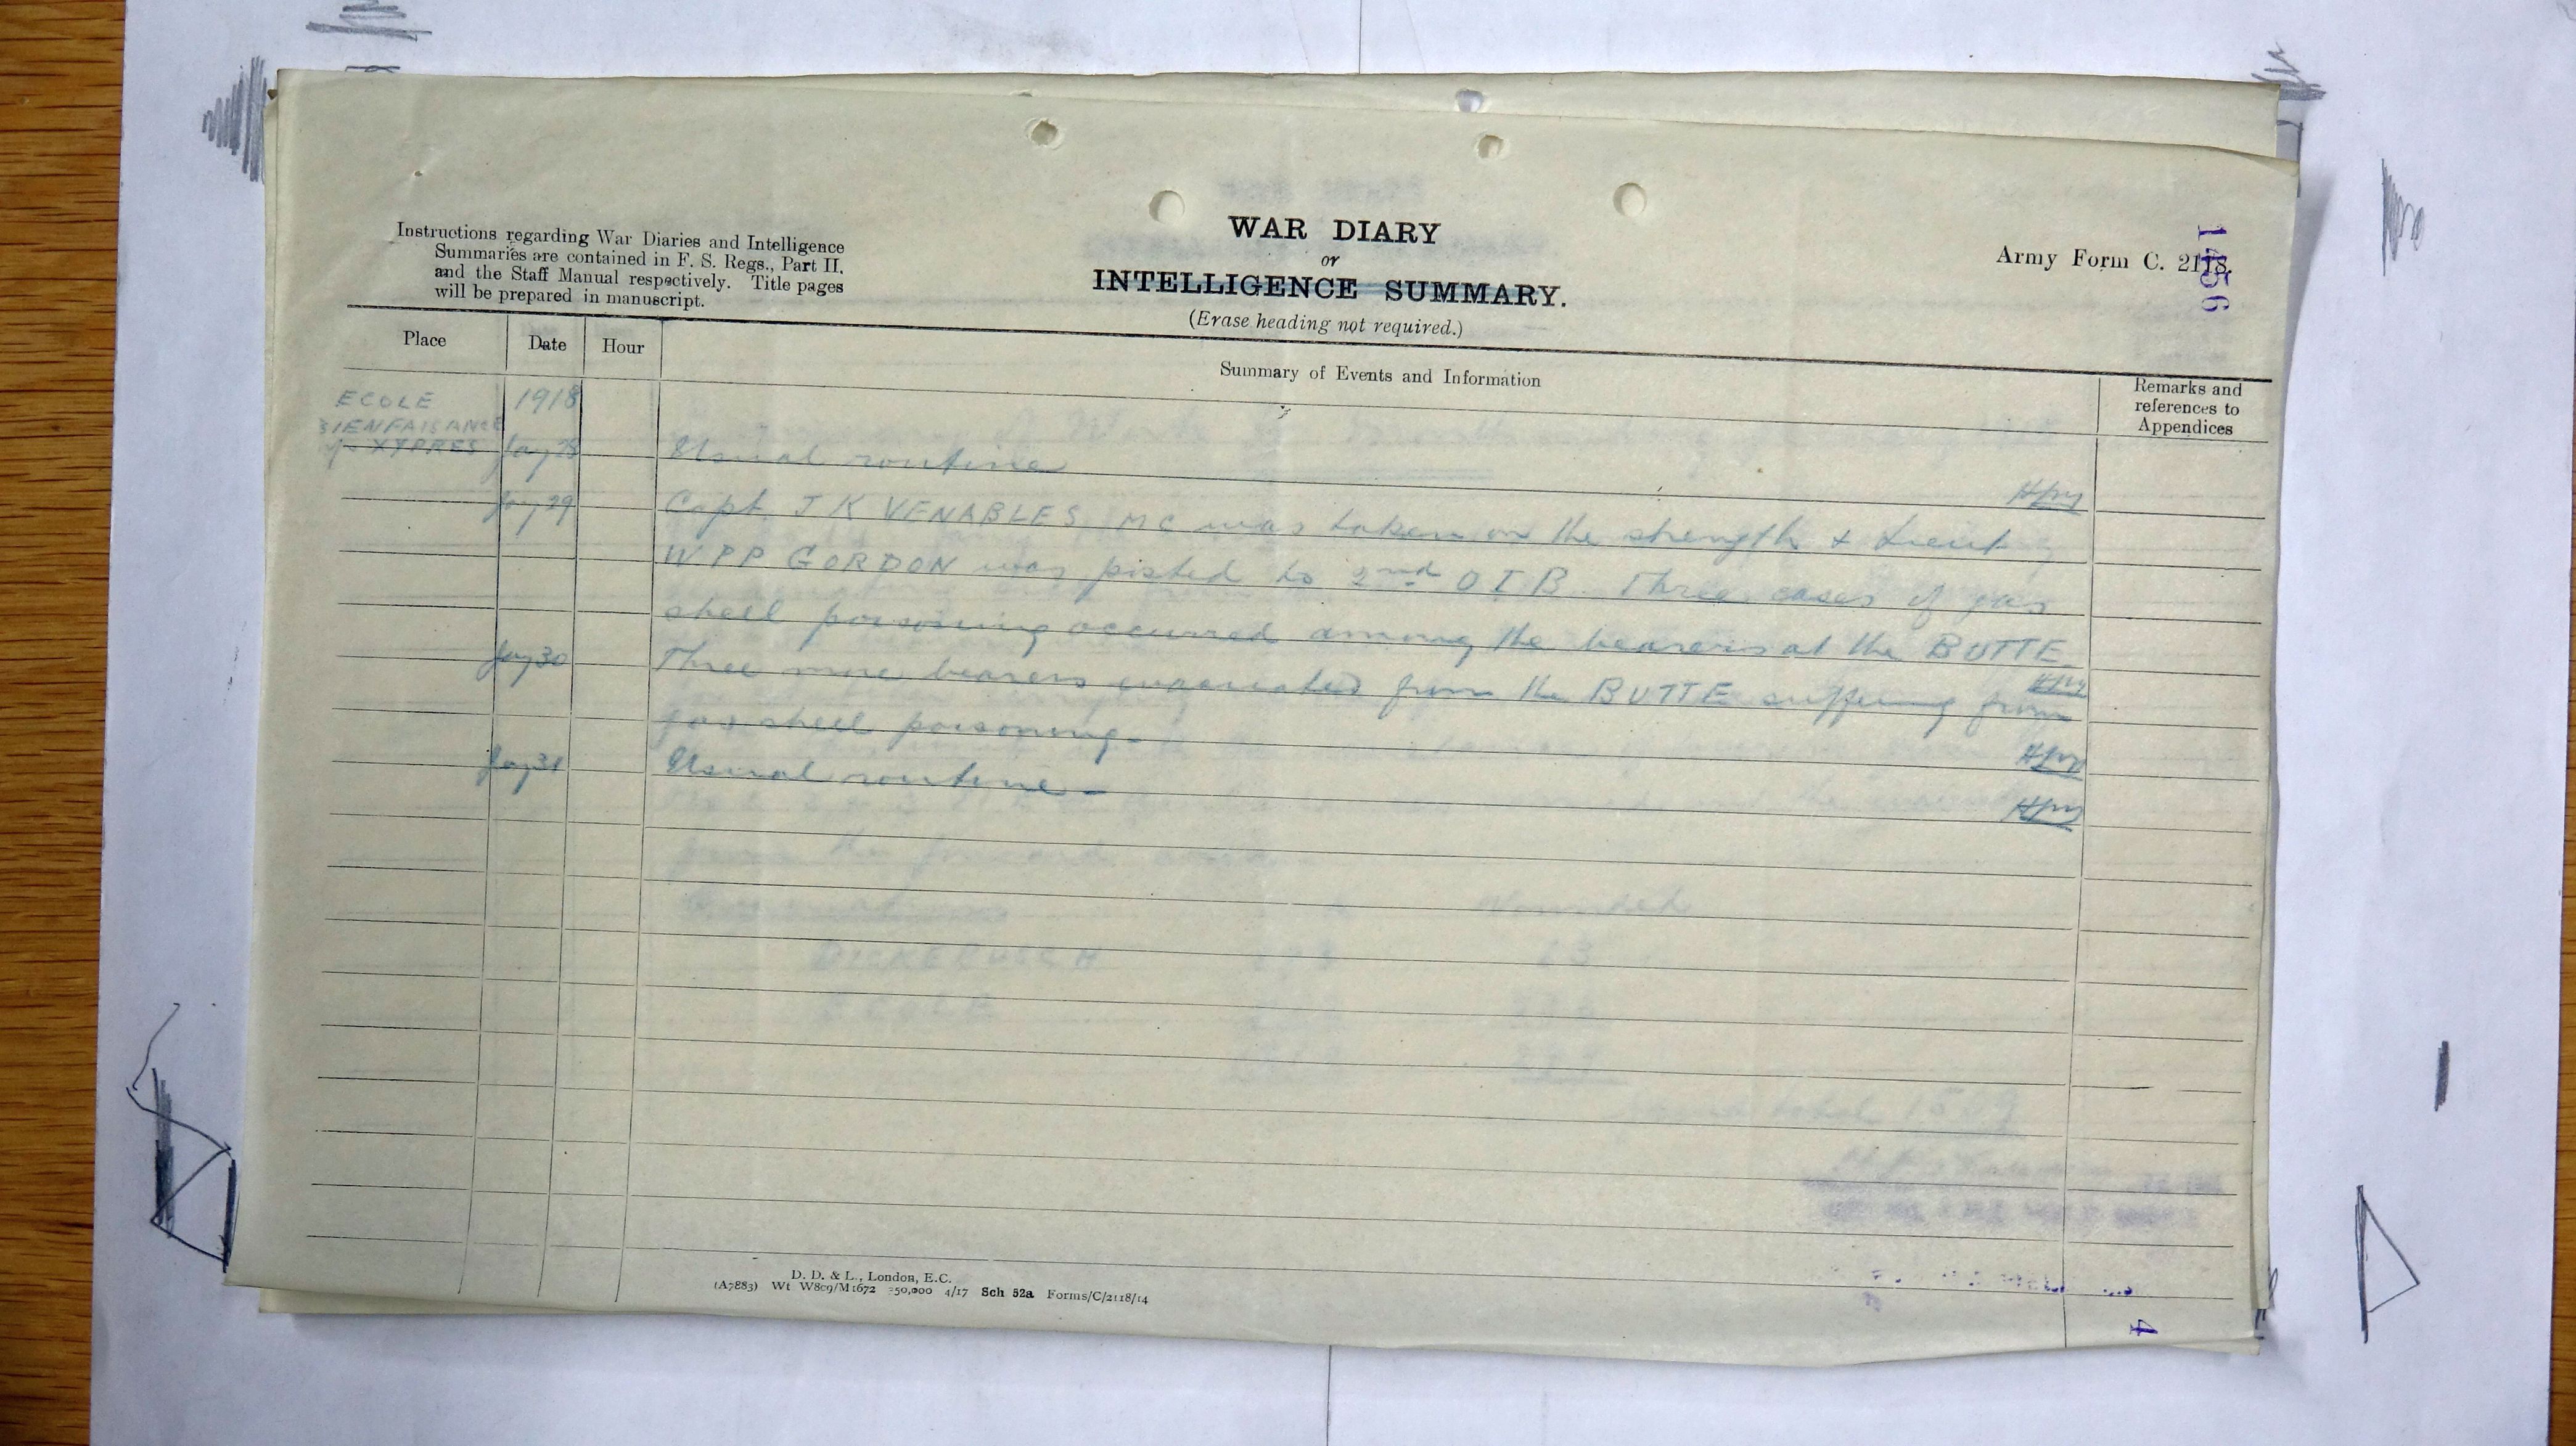 Instructions regarding War Diaries and Intelligence
Summaries are contained in F. S. Regs., Part II.
and the Staff Manual respectively. Title pages
will be prepared in manuscript.
WAR DIARY
or
INTELLIGENCE SUMMARY.
(Erase heading not required.)
Army Form C. 2118.
1456
Place Date Hour Summary of Events and Information Remarks and
references to
Appendices
ECOLE 1918
BIENFAISANCE
YPRES Jany 28 Usual routine
Jany 29 Capt. J K VENABLES MC was taken on the strength & Lieut
W P P GORDON was posted to 2nd O I B. Three cases of gas
shell poisoning occurred among the bearers at the BUTTE
Jany 30 Three more bearers evacuated from the BUTTE suffering from
gas shell poisoning.
Jany 31 Usual routine
Wounded
DICKEBUSCH 13
ECOLE
total
D. D. & L., London, E.C.
(A7883) Wt W809/M1672 350,000 4/17 Sch 52a Forms/C/2118/14
4